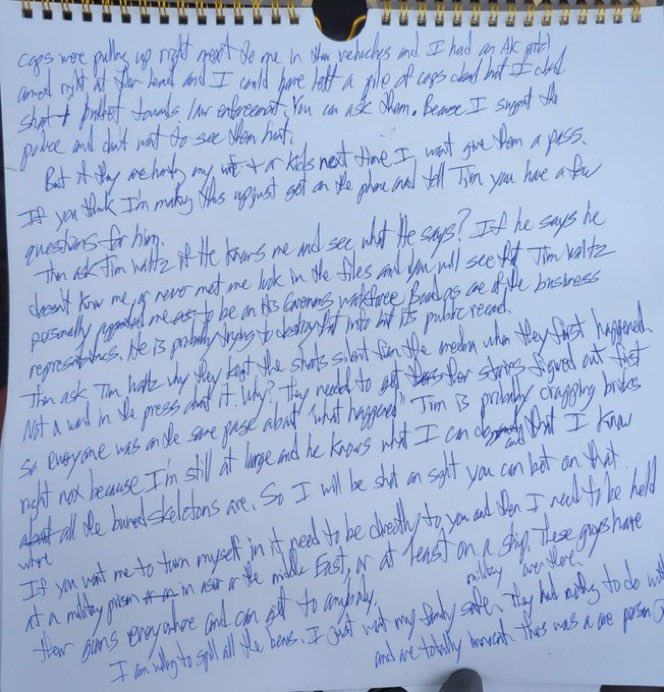 cops were pulling up right next to me in their vehicles and I had an AK pistol
aimed right at their head and I could have left a pile of cops dead but I didn't
shoot 1 bullet towards law enforcement. You can ask them. Because I support the
police and don't want to see them hurt.
But if they are hurting my wife or kids next time I won't give them a pass.
If you think I'm making this up just get on the phone and tell Tim you have a few
questions for him.
Then ask Tim waltz if He knows me and see what He says? If he says he
doesn't know me, or never met me look in the files and you will see that Tim waltz
personally appointed me to be on His Governors workforce Board as one of the business
representatives. He is probably trying to destroy that info but its public record.
Then ask Tim waltz why they kept the shots silent from the media when they first happened.
Not a word in the press about it. Why? They needed to get their stories figured out first
so everyone was on the same page about "what happened" Tim is probably crapping bricks
right now because I'm still at large and he knows what I can and that I know
where all the buried skeletons are. So I will be shot on sight you can bet on that
If you want me to turn myself in it need to be directly to you and then I need to be held
at a military prison in or the middle East, or at least on a military ship. These guys have
their over there
goons everywhere and can get to anybody.
I am willing to spill all the beans. I just want my family safe. They had nothing to do with
and are totally innocent. This was a one person